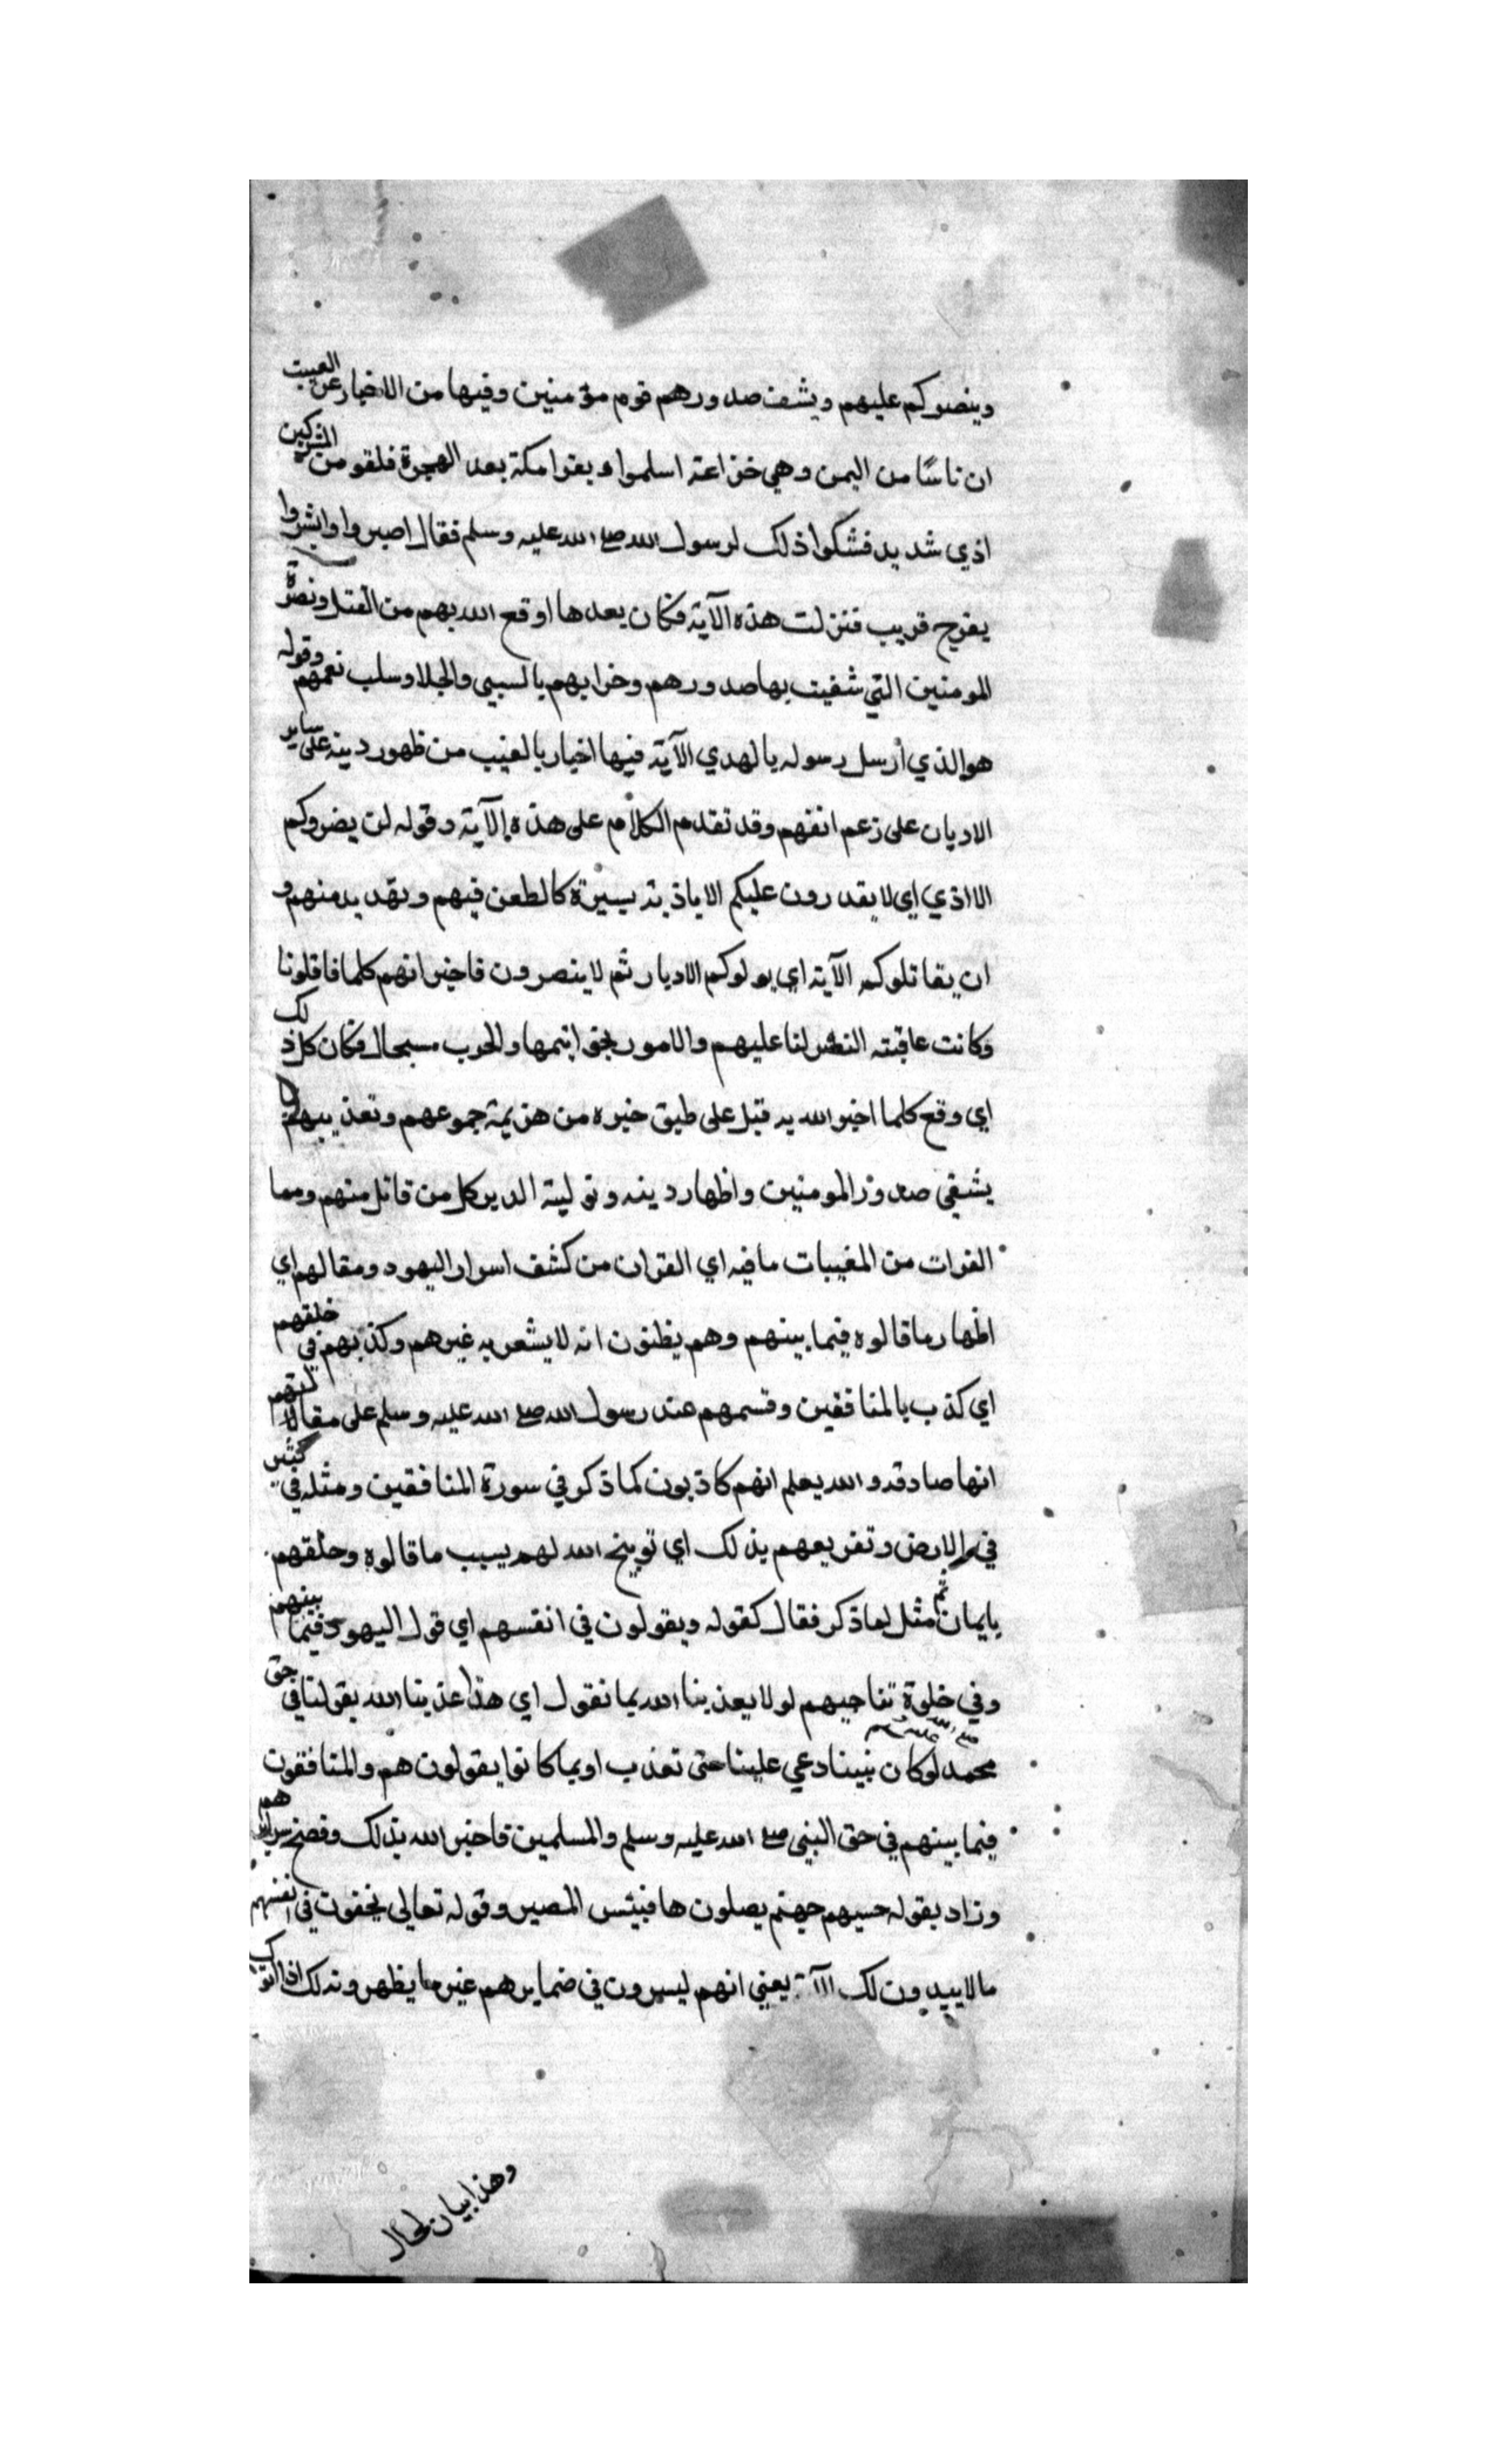 وينصركم عليهم ويشف صدورهم قوم مؤمنين وفيها من الاخبار عن الغيب
ان ناسًا من اليمن وهي خزاعة اسلموا وبقوا مكة بعد الهجرة فلقو من المشركين
اذي شديد فشكوا ذلك لرسول الله صلى الله عليه وسلم فقال اصبروا وابشروا
بفرج قريب فنزلت هذه الآية فكان بعدها اوقع الله بهم من القتل ونصرة
المومنين التي شفيت بها صدورهم وخزايهم بالسبي والجلا وسلب نعمهم وقوله
هو الذي أرسل رسوله بالهدي الآية فيها اخبار بالغيب من ظهور دينه على ساير
الاديان على زعم انفهم وقد تقدم الكلام على هذه الآية وقوله لن يضروكم
الا اذي اي لا يقدرون عليكم الا باذية يسيرة كالطعن فيهم وتهديد منهم و
ان يقاتلوكم الآية اي يولوكم الادبار ثم لا ينصرون فاخبر انهم كلما قاتلونا
وكانت عاقبته النصر لنا عليهم والامور بخواتيمها والحرب سجال فكان كل ذلك
اي وقع كلما اخبر الله به قبل على طبق خبره من هزيمة جموعهم وتعذيبهم
يشفي صدور المومنين واظهار دينه وتولية الدبر كل من قاتل منهم ومما
القران من المغيبات ما فيه اي القران من كشف اسرار اليهود ومقالهم اي
اظهار ما قالوه فيما بينهم وهم يظنون انه لا يشعر به غيرهم وكذبهم في خلقهم
اي كذب بالمنافقين وقسمهم عند رسول الله صلى الله عليه وسلم على مقالتهم
انها صادقه والله يعلم انهم كاذبون كما ذكر في سورة المنافقين ومثله في كثير
في الارض وتقريعهم بذلك اي توبيخ الله لهم بسبب ما قالوه وحلفهم
بايمان ثم مثل لما ذكر فقال كقوله ويقولون في انفسهم اي قول اليهود فيما بينهم
وفي خلوة تناجيهم لولا يعذبنا الله بما نقول اي هذا عذبنا الله بقولنا في حق
محمد صلى الله عليه وسلم لو كان نبينا دعي علينا حتى تعذب او بما كانوا يقولون هم والمنافقون
فيما بينهم في حق النبي صلى الله عليه وسلم والمسلمين فاخبر الله بذلك وفضح سرايرهم
وزاد بقوله حسبهم جهنم يصلون ها فبيئس المصير وقوله تعالى يخفون في انفسهم
ما لا يبدون لك الآية يعني انهم ليسرون في ضمايرهم غير ما يظهرونه لك اذا اتوك
وهذا بيان لحال